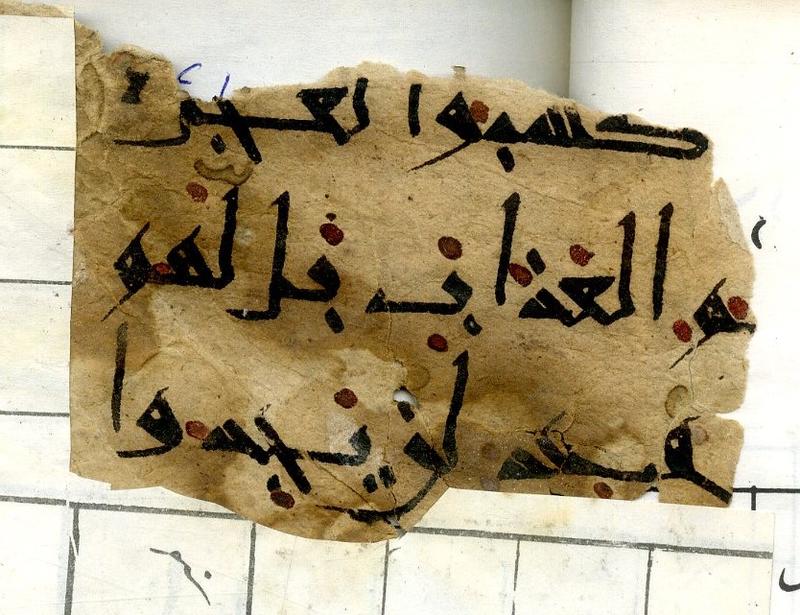 كسبوا لعجل
لهم العذاب بل لهم مو
عد لن يجدوا